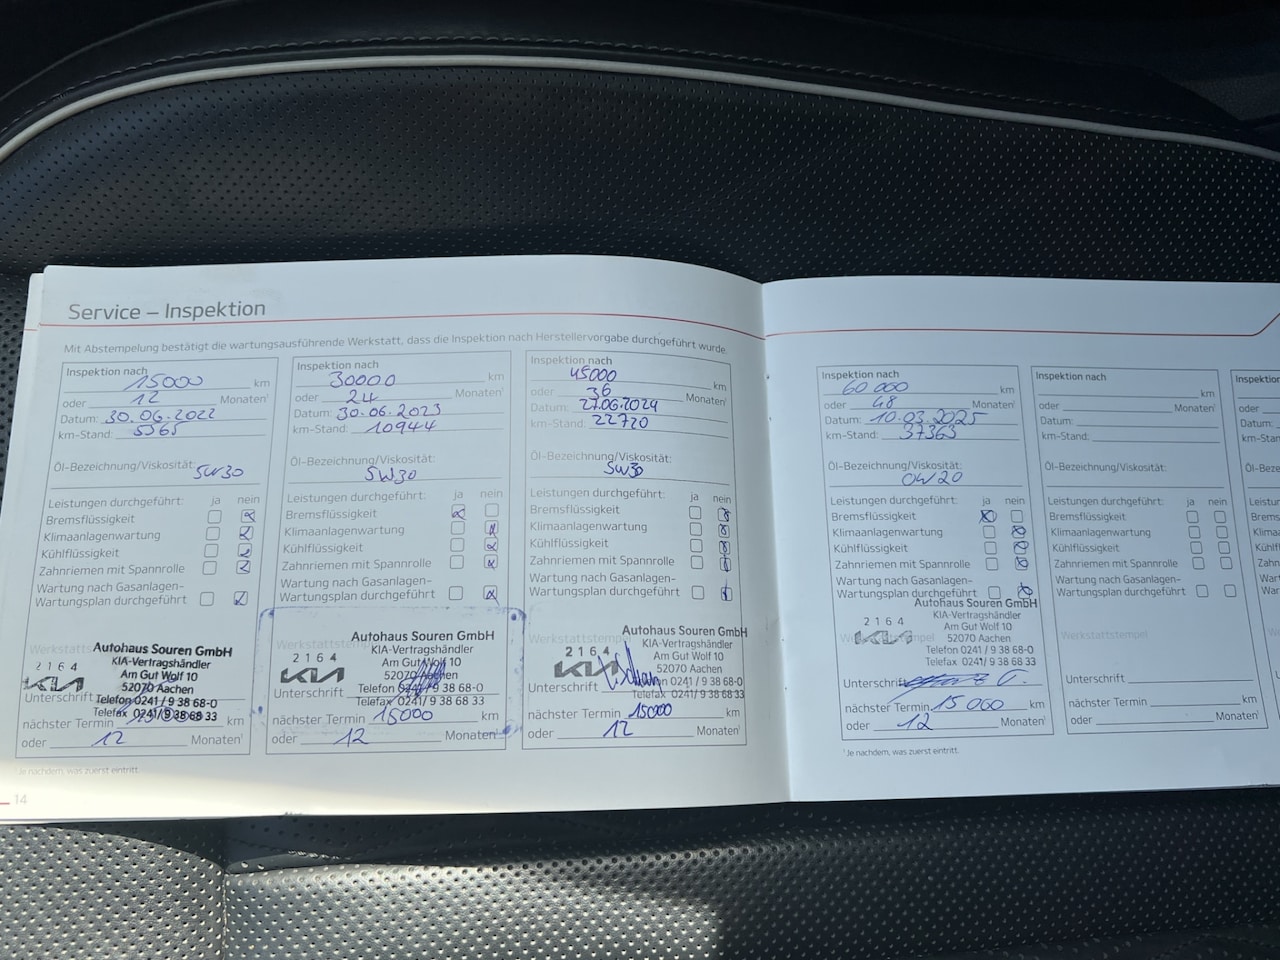 Service – Inspektion
Mit Abstempelung bestätigt die wartungsausführende Werkstatt, dass die Inspektion nach Herstellervorgabe durchgeführt wurde.
Inspektion nach
15000 km
oder 12 Monaten¹
Datum: 30.06.2022
km-Stand: 5365
Öl-Bezeichnung/Viskosität:
5W30
Leistungen durchgeführt: ja nein
Bremsflüssigkeit
Klimaanlagenwartung
Kühlflüssigkeit
Zahnriemen mit Spannrolle
Wartung nach Gasanlagen-
Wartungsplan durchgeführt
Werkstattstempel
Autohaus Souren GmbH
2164 KIA-Vertragshändler
KIA Am Gut Wolf 10
52070 Aachen
Unterschrift Telefon 0241 / 9 38 68-0
Telefax 0241 / 9 38 68 33
nächster Termin km
oder 12 Monaten¹
¹ Je nachdem, was zuerst eintritt.
14
Inspektion nach
30000 km
oder 24 Monaten¹
Datum: 30.06.2023
km-Stand: 10944
Öl-Bezeichnung/Viskosität:
5W30
Leistungen durchgeführt: ja nein
Bremsflüssigkeit
Klimaanlagenwartung
Kühlflüssigkeit
Zahnriemen mit Spannrolle
Wartung nach Gasanlagen-
Wartungsplan durchgeführt
Werkstattstempel
Autohaus Souren GmbH
2164 KIA-Vertragshändler
KIA Am Gut Wolf 10
52070 Aachen
Unterschrift Telefon 0241 / 9 38 68-0
Telefax 0241 / 9 38 68 33
nächster Termin 15000 km
oder 12 Monaten¹
Inspektion nach
45000 km
oder 36 Monaten¹
Datum: 27.06.2024
km-Stand: 22720
Öl-Bezeichnung/Viskosität:
5W30
Leistungen durchgeführt: ja nein
Bremsflüssigkeit
Klimaanlagenwartung
Kühlflüssigkeit
Zahnriemen mit Spannrolle
Wartung nach Gasanlagen-
Wartungsplan durchgeführt
Werkstattstempel
Autohaus Souren GmbH
2164 KIA-Vertragshändler
KIA Am Gut Wolf 10
52070 Aachen
Unterschrift Telefon 0241 / 9 38 68-0
Telefax 0241 / 9 38 68 33
nächster Termin 15000 km
oder 12 Monaten¹
Inspektion nach
60 000 km
oder 48 Monaten¹
Datum: 10.03.2025
km-Stand: 37363
Öl-Bezeichnung/Viskosität:
0W20
Leistungen durchgeführt: ja nein
Bremsflüssigkeit
Klimaanlagenwartung
Kühlflüssigkeit
Zahnriemen mit Spannrolle
Wartung nach Gasanlagen-
Wartungsplan durchgeführt
Autohaus Souren GmbH
2164 KIA-Vertragshändler
Am Gut Wolf 10
Werkstattstempel
KIA 52070 Aachen
Telefon 0241 / 9 38 68-0
Telefax 0241 / 9 38 68 33
Unterschrift
nächster Termin 15 000 km
oder 12 Monaten¹
¹ Je nachdem, was zuerst eintritt.
Inspektion nach
km
oder Monaten¹
Datum:
km-Stand:
Öl-Bezeichnung/Viskosität:
Leistungen durchgeführt: ja nein
Bremsflüssigkeit
Klimaanlagenwartung
Kühlflüssigkeit
Zahnriemen mit Spannrolle
Wartung nach Gasanlagen-
Wartungsplan durchgeführt
Werkstattstempel
Unterschrift
nächster Termin km
oder Monaten¹